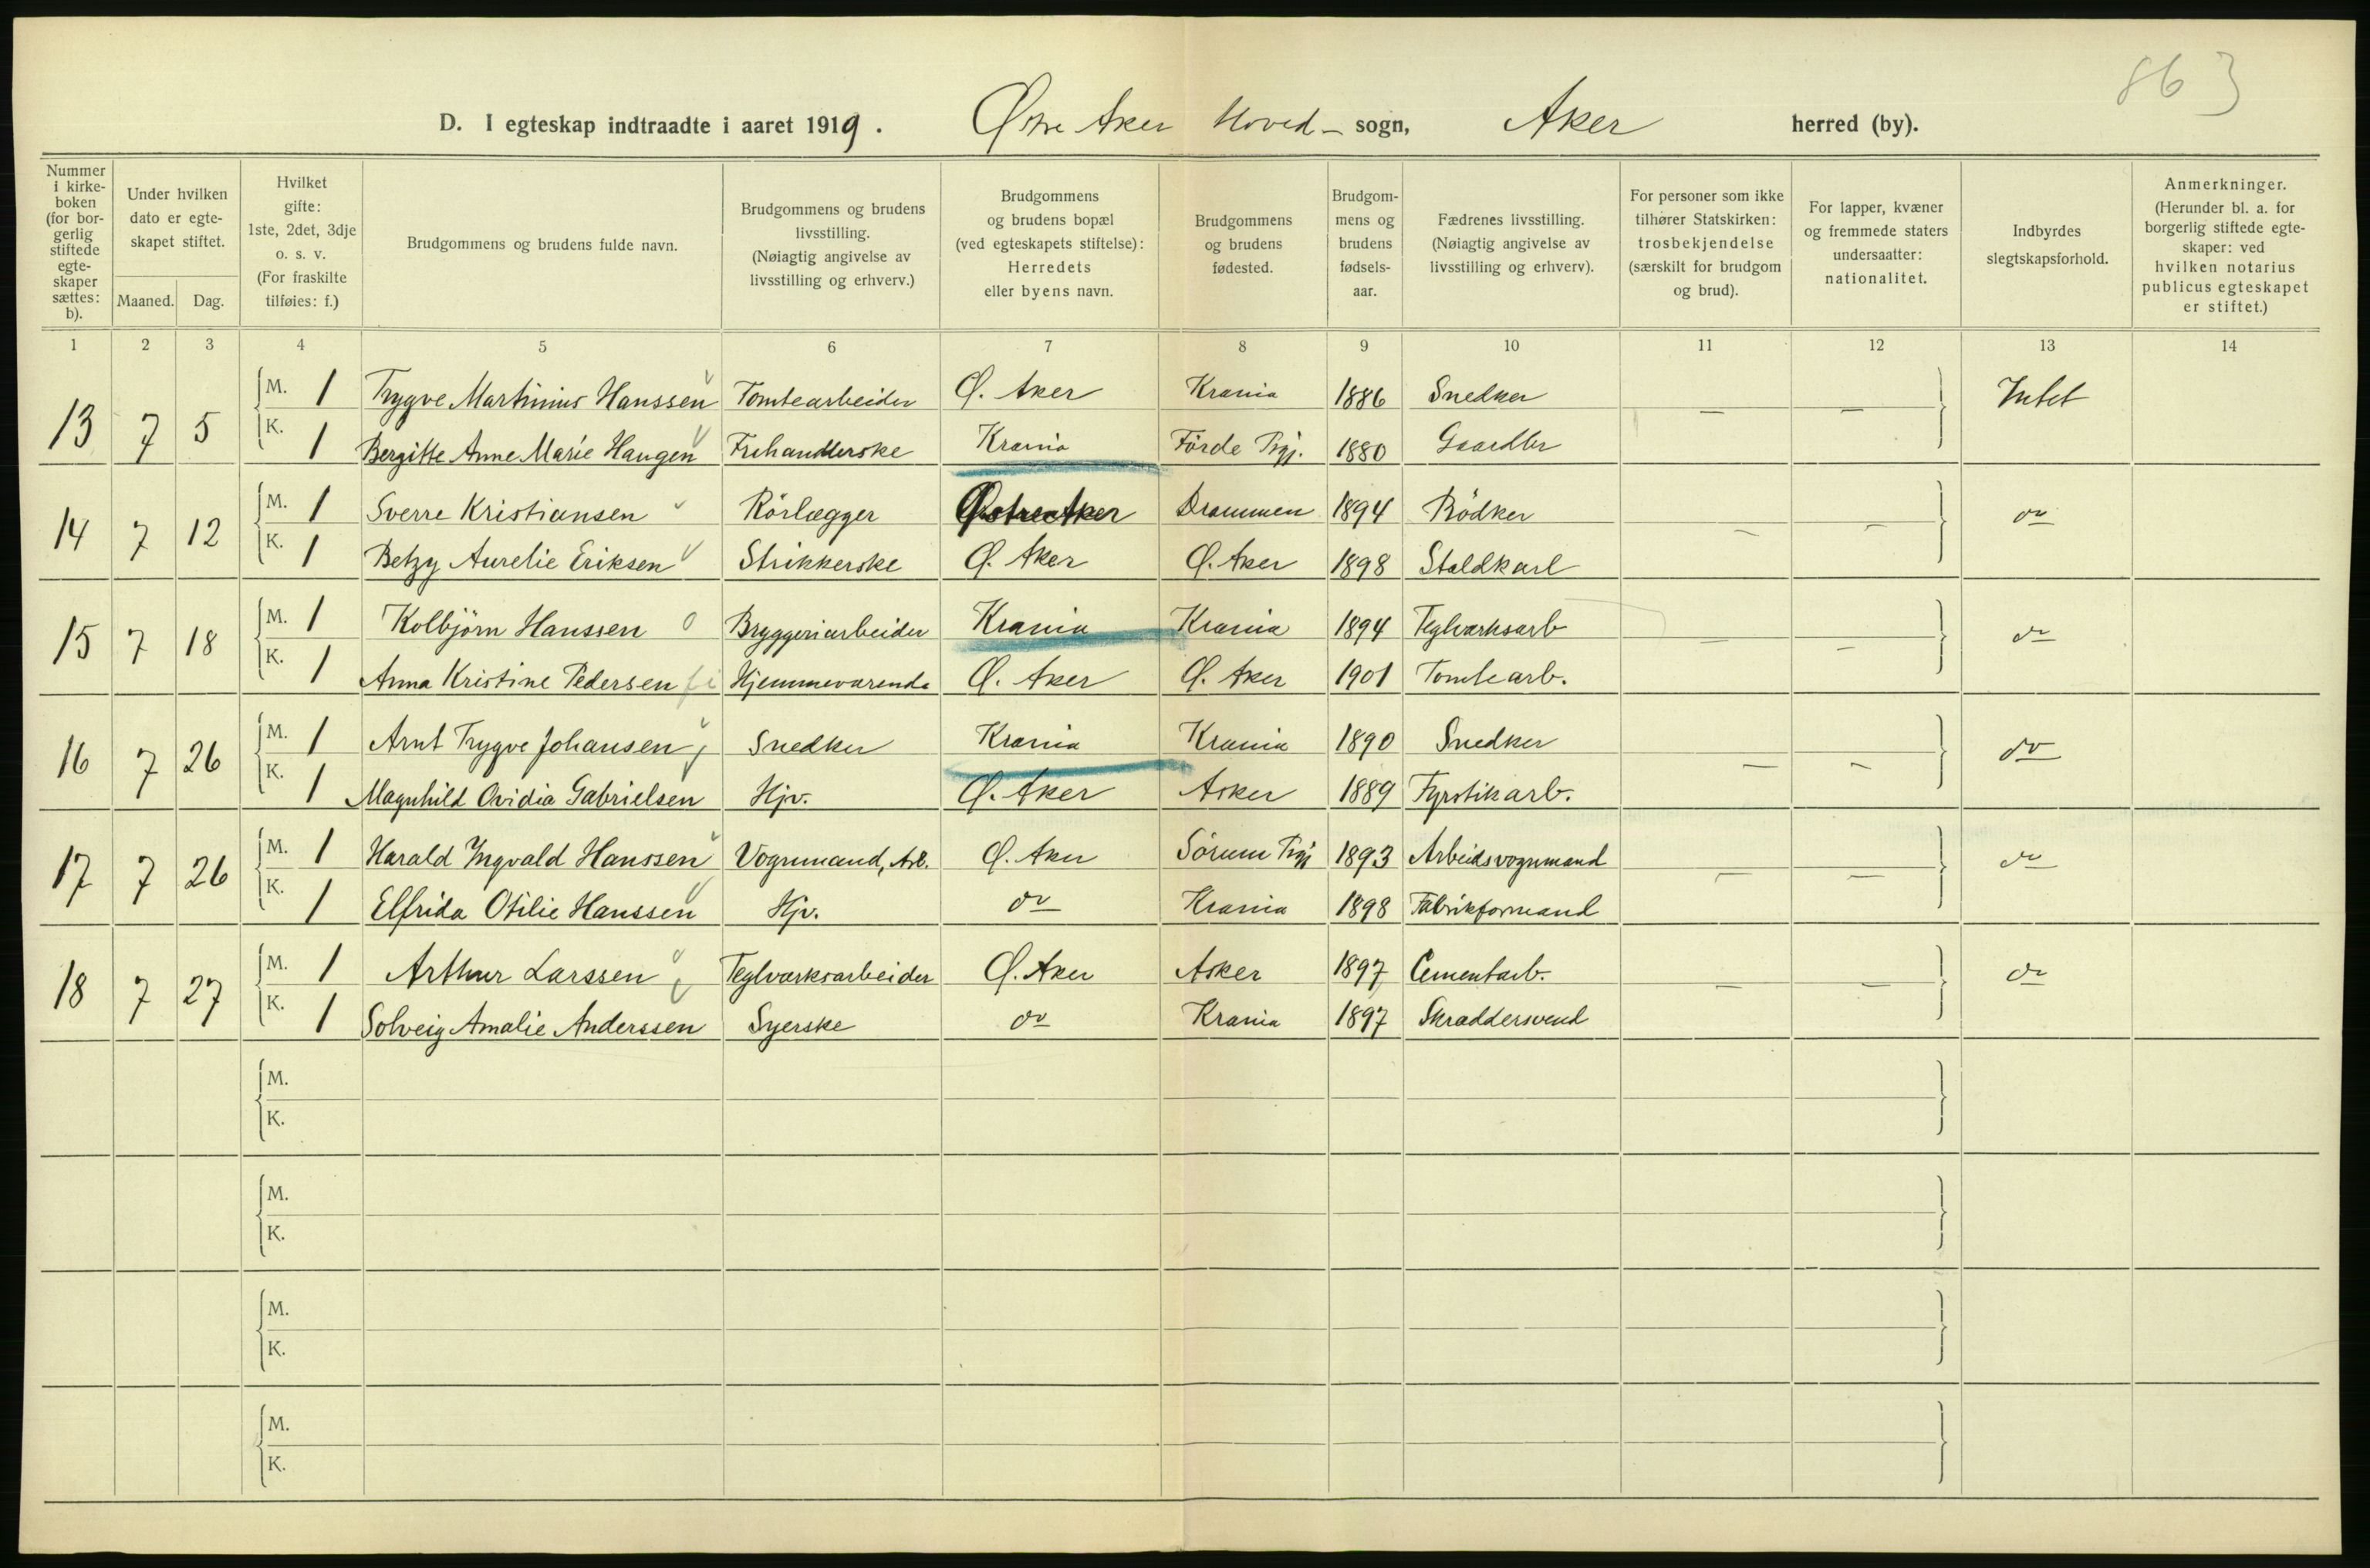 863
D. I egteskap indtraadte i aaret 1919. Østre Aker Hoved- sogn, Aker herred (by).
Nummer i kirkeboken (for borgerlig stiftede egteskaper sættes: b).
Under hvilken dato er egteskapet stiftet.
Maaned. Dag.
Hvilket gifte: 1ste, 2det, 3dje o. s. v. (For fraskilte tilføies: f.)
Brudgommens og brudens fulde navn.
Brudgommens og brudens livsstilling. (Nøiagtig angivelse av livsstilling og erhverv.)
Brudgommens og brudens bopæl (ved egteskapets stiftelse): Herredets eller byens navn.
Brudgommens og brudens fødested.
Brudgommens og brudens fødselsaar.
Fædrenes livsstilling. (Nøiagtig angivelse av livsstilling og erhverv).
For personer som ikke tilhører Statskirken: trosbekjendelse (særskilt for brudgom og brud).
For lapper, kvæner og fremmede staters undersaatter: nationalitet.
Indbyrdes slegtskapsforhold.
Anmerkninger. (Herunder bl. a. for borgerlig stiftede egteskaper: ved hvilken notarius publicus egteskapet er stiftet.)
1 2 3 4 5 6 7 8 9 10 11 12 13 14
13 7 5 M. 1 Trygve Martinius Hanssen Tomtearbeider Ø. Aker Krania 1886 Snedker — — Intet
K. 1 Bergitte Anne Marie Haugen Frihandlerske Krania Førde Prgj. 1880 Gaardbr
14 7 12 M. 1 Sverre Kristiansen Rörlægger Østre Aker Drammen 1894 Bödker — — do
K. 1 Betzy Aurelie Eriksen Strikkerske Ø. Aker Ø. Aker 1898 Staldkarl
15 7 18 M. 1 Kolbjörn Hanssen Bryggeriarbeider Krania Krania 1894 Teglverksarb — — do
K. 1 Anna Kristine Pedersen Hjemmeværende Ø. Aker Ø. Aker 1901 Tomtearb.
16 7 26 M. 1 Arnt Trygve Johansen Snedker Krania Krania 1890 Snedker — — do
K. 1 Magnhild Ovidia Gabrielsen Hjv. Ø. Aker Asker 1889 Fyrstikarb.
17 7 26 M. 1 Harald Ingvald Hanssen Vognmand, Arb. Ø. Aker Sörum Prgj 1893 Arbeidsvognmand — — do
K. 1 Elfrida Otilie Hanssen Hjv. do Krania 1898 Fabrikformand
18 7 27 M. 1 Arthur Larssen Teglværksarbeider Ø. Aker Asker 1897 Cementarb. — — do
K. 1 Solveig Amalie Anderssen Syerske do Krania 1897 Skræddersvend
M.
K.
M.
K.
M.
K.
M.
K.